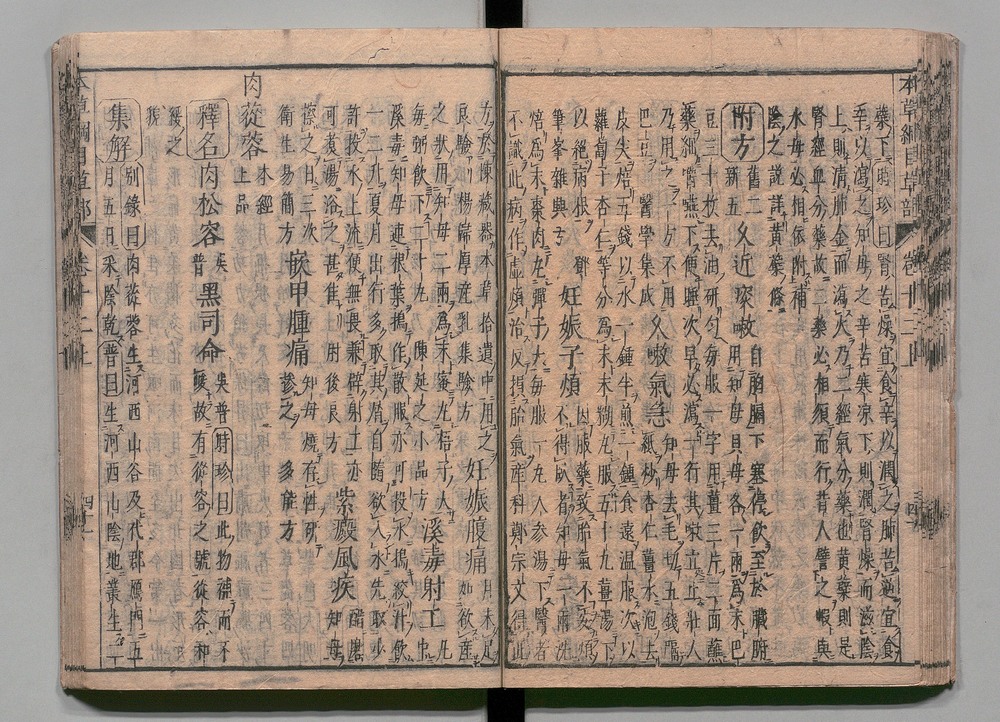 本草綱目草部 卷十二上
藥下時珍曰腎苦燥宜食辛以潤之肺苦逆宜食
辛以瀉之知母之辛苦寒凉下則潤腎燥而滋陰
上則清肺金而瀉火乃二經氣分藥也黃蘗則是
腎經血分藥故二藥必相須而行昔人譬之蝦與
水母必相依附補
陰之說詳黃蘗條
附方 舊二新五 久近痰嗽 自胸膈下塞停飲至於臟腑用知母貝母各一兩為末巴
豆三十枚去油研勻每服一字用薑三片二面蘸
藥細嚼嚥下便睡次早必瀉一行其嗽立止壯人
乃用之一方不用
巴豆 醫學集成 久嗽氣急 知母去毛切五錢隔紙炒杏仁薑水泡去
皮尖焙五錢以水一鍾半煎一鍾食遠溫服次以
蘿蔔子杏仁等分為末米糊丸服五十丸薑湯下
以絕病根 鄧筆峯雜興方 妊娠子煩 因服藥致胎氣不安煩不得臥者知母一兩洗
焙為末棗肉丸彈子大每服一丸人參湯下醫者
不識此病作虛煩治反損胎氣產科鄭宗文得此
方於陳藏器本草拾遺中用之
良驗 楊歸厚產乳集驗方 妊娠腹痛 月未足如欲產
之狀用知母二兩為末蜜丸梧子大
每粥飲下二十丸 陳延之小品方 溪毒射工 凡中
溪毒知母連根葉搗作散服亦可投水搗絞汁飲
一二升夏月出行多取其屑自隨欲入水先取少
許投水上流便無畏兼辟射工亦
可煮湯浴之甚佳 肘後良方 紫癜風疾 醋磨知母
擦之日三次
衛生易簡方 嵌甲腫痛 知母燒存性研
摻之 多能方
肉蓯蓉 本經上品
釋名 肉松容 吳普 黑司命 吳普 時珍曰此物補而不
峻故有從容之號從容和
緩之
貌
集解 別錄曰肉蓯蓉生河西山谷及代郡雁門五
月五日采陰乾 普曰 生河西山陰地叢生二
本草綱目草部 卷十二上